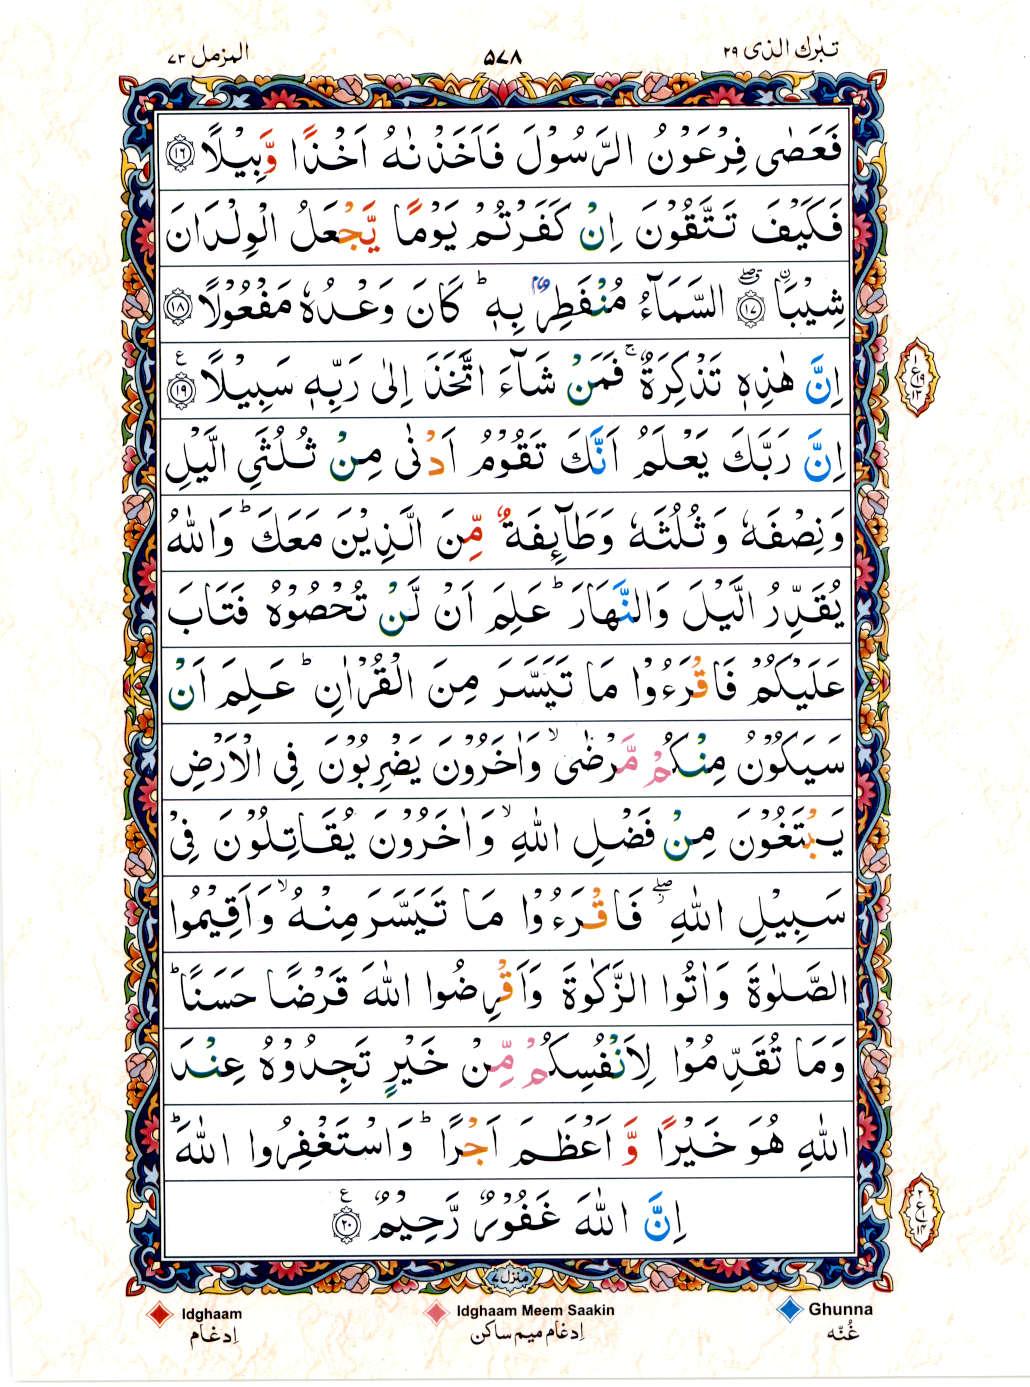 المزمل ٧٣ ٥٧٨ تبٰرك الذى ٢٩
فَعَصٰى فِرْعَوْنُ الرَّسُوْلَ فَاَخَذْنٰهُ اَخْذًا وَّبِيْلًا ١٦
فَكَيْفَ تَتَّقُوْنَ اِنْ كَفَرْتُمْ يَوْمًا يَّجْعَلُ الْوِلْدَانَ
شِيْبَاۨ ١٧ۖۗ السَّمَآءُ مُنْفَطِرٌۢ بِهٖ ؕ كَانَ وَعْدُهٗ مَفْعُوْلًا ١٨
اِنَّ هٰذِهٖ تَذْكِرَةٌ ۚ فَمَنْ شَآءَ اتَّخَذَ اِلٰى رَبِّهٖ سَبِيْلًا ١٩ ع
اِنَّ رَبَّكَ يَعْلَمُ اَنَّكَ تَقُوْمُ اَدْنٰى مِنْ ثُلُثَيِ الَّيْلِ
وَنِصْفَهٗ وَثُلُثَهٗ وَطَآئِفَةٌ مِّنَ الَّذِيْنَ مَعَكَ ؕ وَاللّٰهُ
يُقَدِّرُ الَّيْلَ وَالنَّهَارَ ؕ عَلِمَ اَنْ لَّنْ تُحْصُوْهُ فَتَابَ
عَلَيْكُمْ فَاقْرَءُوْا مَا تَيَسَّرَ مِنَ الْقُرْاٰنِ ؕ عَلِمَ اَنْ
سَيَكُوْنُ مِنْكُمْ مَّرْضٰى ۙ وَاٰخَرُوْنَ يَضْرِبُوْنَ فِى الْاَرْضِ
يَبْتَغُوْنَ مِنْ فَضْلِ اللّٰهِ ۙ وَاٰخَرُوْنَ يُقَاتِلُوْنَ فِىْ
سَبِيْلِ اللّٰهِ ۖ فَاقْرَءُوْا مَا تَيَسَّرَ مِنْهُ ۙ وَاَقِيْمُوا
الصَّلٰوةَ وَاٰتُوا الزَّكٰوةَ وَاَقْرِضُوا اللّٰهَ قَرْضًا حَسَنًا ؕ
وَمَا تُقَدِّمُوْا لِاَنْفُسِكُمْ مِّنْ خَيْرٍ تَجِدُوْهُ عِنْدَ
اللّٰهِ هُوَ خَيْرًا وَّ اَعْظَمَ اَجْرًا ؕ وَاسْتَغْفِرُوا اللّٰهَ ؕ
اِنَّ اللّٰهَ غَفُوْرٌ رَّحِيْمٌ ٢٠ ع
١ ع ١٩ ١٣
٢ ع ١ ١٤
منزل ٧
Idghaam Idghaam Meem Saakin Ghunna
اِدغام اِدغام ميم ساكن غُنّه